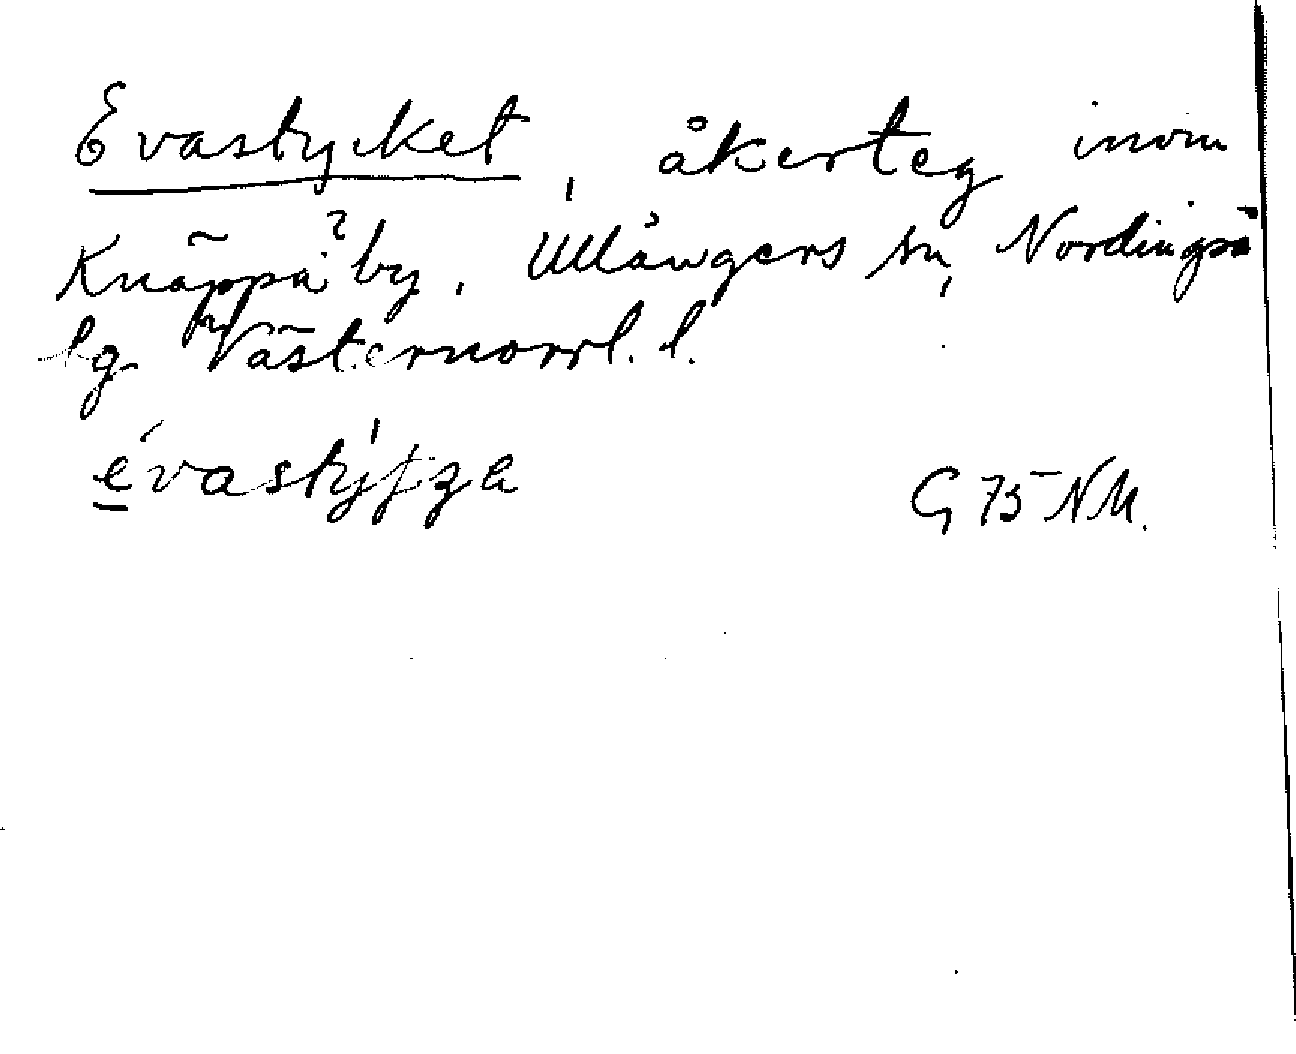 Evastycket, åkerteg inom
Knäppå by, Ullångers sn, Nordingrå
tg Västernorrl. l.
G 75 NM.